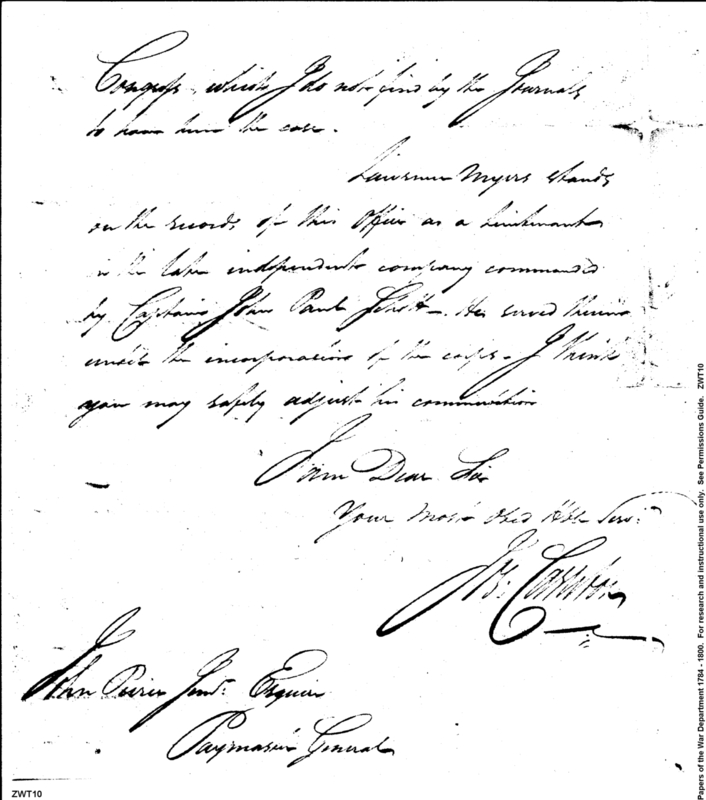 Congress which I do not find by the Journals
to have been the case.
Lawrence Myers stands
on the records of this Office as a Lieutenant
in the late independent company commanded
by Captain John Paul Schott. He served therein
until the incorporation of the corps. I think
you may safely adjust his commutation
I am Dear Sir
Your Most Obed Hble Servt
Jos. Carleton
John Peirce Junr. Esquire
Paymaster General
ZWT10
Papers of the War Department 1784 - 1800. For research and instructional use only. See Permissions Guide. ZWT10